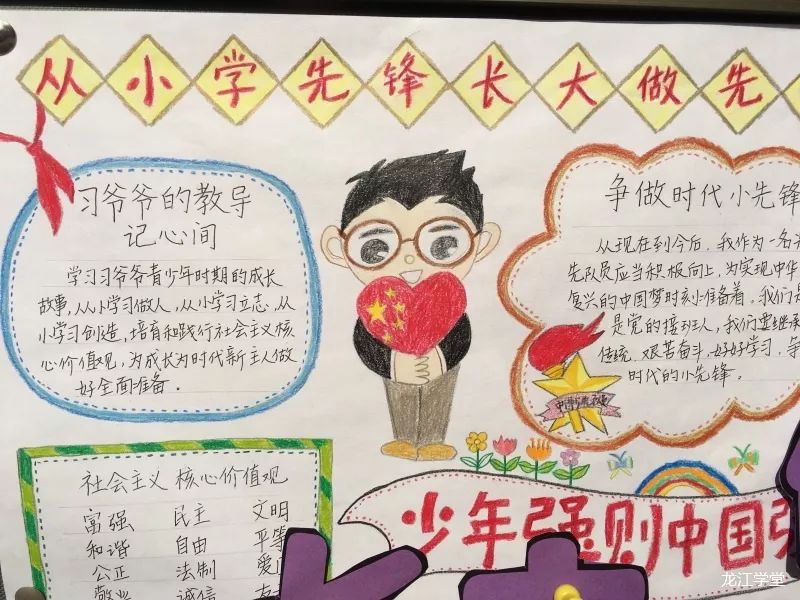 从小学先锋长大做先
习爷爷的教导
记心间
学习习爷爷青少年时期的成长
故事,从小学习做人,从小学习立志,从
小学习创造,培育和践行社会主义核
心价值观,为成长为时代新主人做
好全面准备。
争做时代小先锋
从现在到今后,我作为一名
先队员应当积极向上,为实现中华
复兴的中国梦时刻准备着,我们是
是党的接班人,我们要继承
传统,艰苦奋斗,好好学习,争
时代的小先锋。
社会主义 核心价值观
富强 民主 文明
和谐 自由 平等
公正 法制 爱
敬业 诚信
少年强则中国强
龙江学堂